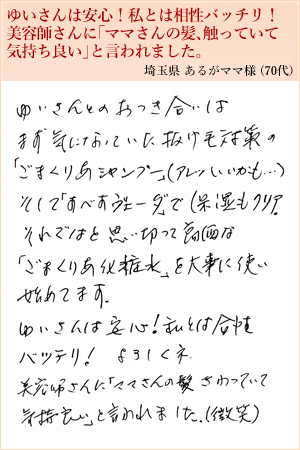 ゆいさんは安心！私とは相性バッチリ！
美容師さんに「ママさんの髪、触っていて
気持ち良い」と言われました。
埼玉県 あるがママ様（70代）
ゆいさんとのおつき合いは
まず気になっていた抜け毛対策の
「ごまくりあシャンプー」（アレッいいかも…）
そして「すべすウェーダ」で（保湿もクリア
それではと思い切って高価な
「ごまくりあ化粧水」を大事に使い
始めてます。
ゆいさんは安心！私とは合性
バッテリ！ よろしくネ
美容師さんに「ママさんの髪 さわっていて
気持良い」と言われました。（微笑）